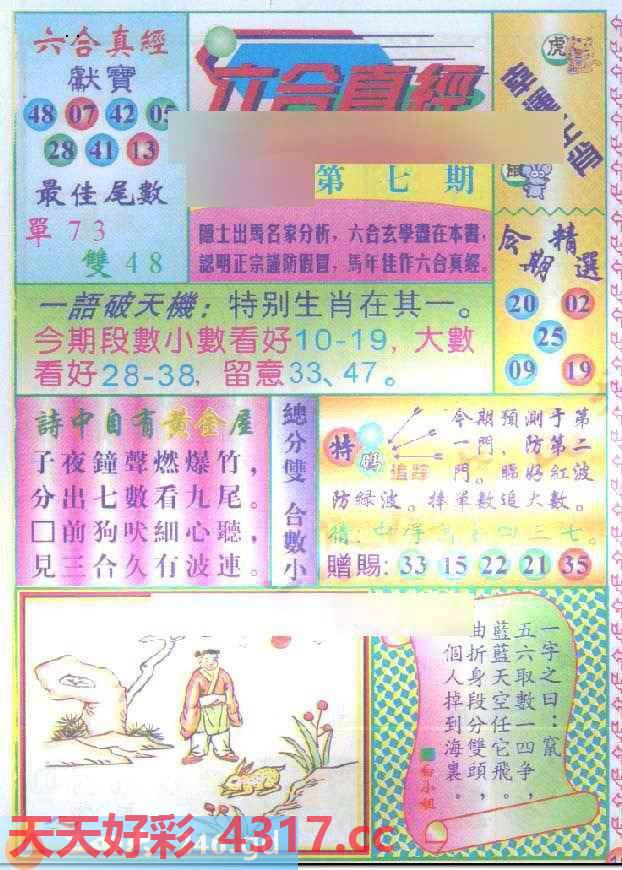 六合真經
獻寶
48 07 42 05
28 41 13
最佳尾數
單 7 3
雙 4 8
六合真經
第七期
隱士出馬名家分析，六合玄學盡在本書，
認明正宗謹防假冒，馬年佳作六合真經。
虎
鼠
今期精選
20 02
25
09 19
一語破天機：特別生肖在其一。
今期段數小數看好10-19，大數
看好28-38，留意33、47。
詩中自有黃金屋
子夜鐘聲燃爆竹，
分出七數看九尾。
□前狗吠細心聽，
見三合久有波連。
總分雙 合數小
特
碼
追踪
今期預測于第
一門，防第二
門。睇好紅波
防綠波。捧單數追大數。
贈賜：33 15 22 21 35
一字之曰：竄
五六取數一四争，
藍藍天空任它飛。
曲折身段分雙頭，
個人掉到海裏。
白小姐
天天好彩 4317.cc